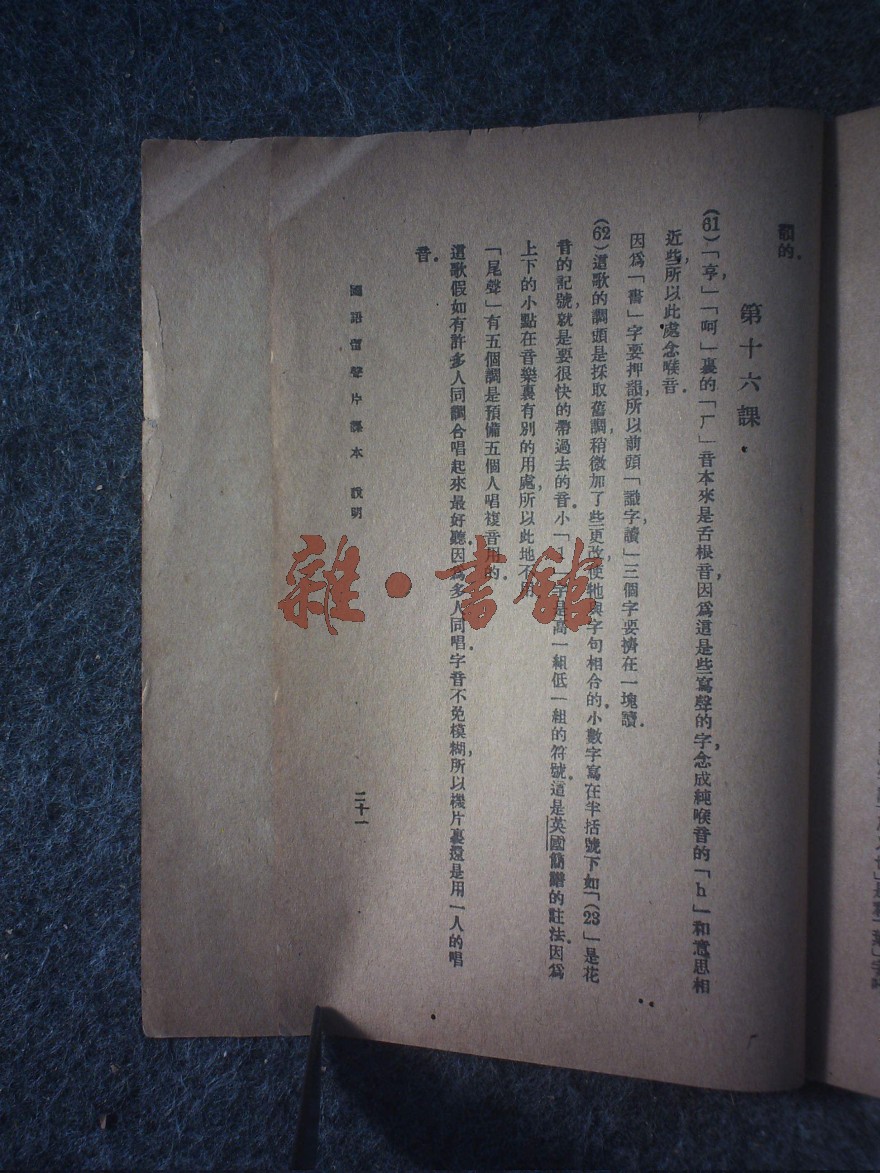 韻的。
第十六課
(61)「亨,」「呵」裏的「ㄏ」音本來是舌根音,因爲這是些寫聲的字念成純喉音的「h」和意思相
近些,所以此處念喉音。
因爲「書」字要押韻,所以前頭「識字讀」三個字要擠在一塊讀。
(62)這歌的調頭是採取舊調,稍微加了些更改,使牠與字句相合的。小數字寫在半括號下如「(23」是花
音的記號,就是要很快的帶過去的音。小「1」字是高一組低一組的符號。這是英國簡譜的註法。因爲
上下的小點在音樂裏有別的用處,所以此地不用。
「尾聲」有五個調是預備五個人唱複音用的。
這歌假如有許多人同調合唱起來最好聽。因爲多人同唱,字音不免模糊,所以機片裏還是用一人的唱
音。
國語留聲片課本 說明
二十一
雜·書館